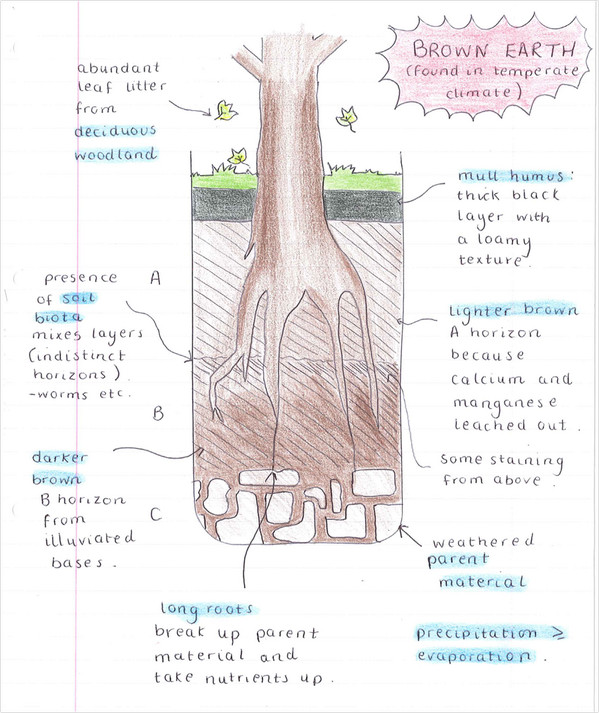 BROWN EARTH
(found in temperate
climate)
abundant
leaf litter
from
deciduous
woodland
mull humus:
thick black
layer with
a loamy
texture.
presence
of soil
biota
mixes layers
(indistinct
horizons)
-worms etc.
A
B
C
lighter brown
A horizon
because
calcium and
manganese
leached out.
some staining
from above.
darker
brown
B horizon
from
illuviated
bases.
weathered
parent
material
long roots
break up parent
material and
take nutrients up.
precipitation ≥
evaporation.